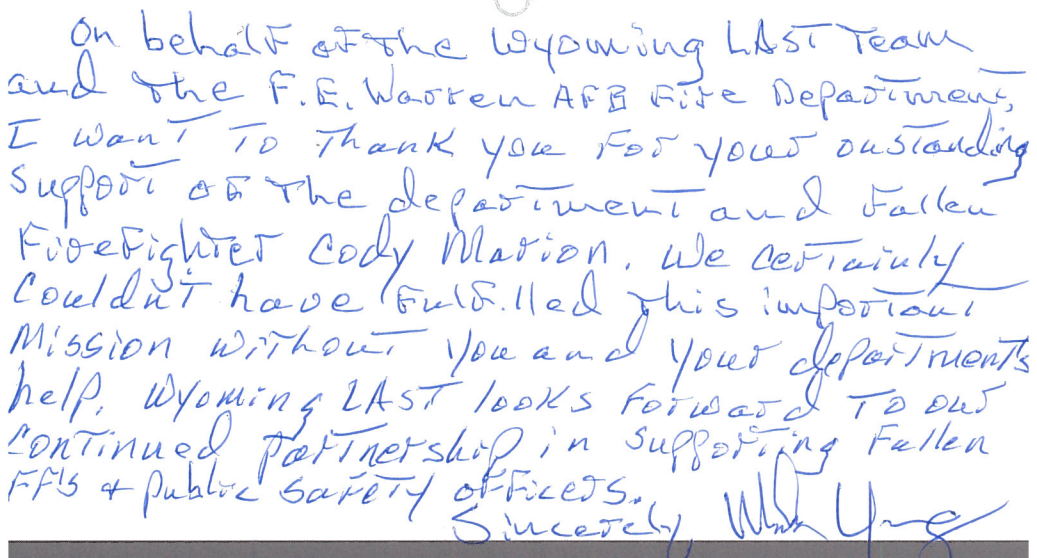 On behalf of the Wyoming LAST Team
and the F.E. Warren AFB Fire Department,
I want To Thank you For your oustanding
Support of The department and Fallen
Firefighter Cody Marion. We certainly
Couldn't have Fulfilled this important
Mission without you and your department's
help. Wyoming LAST looks Forward To our
continued partnership in supporting Fallen
FF's + public safety officers.
Sincerely,